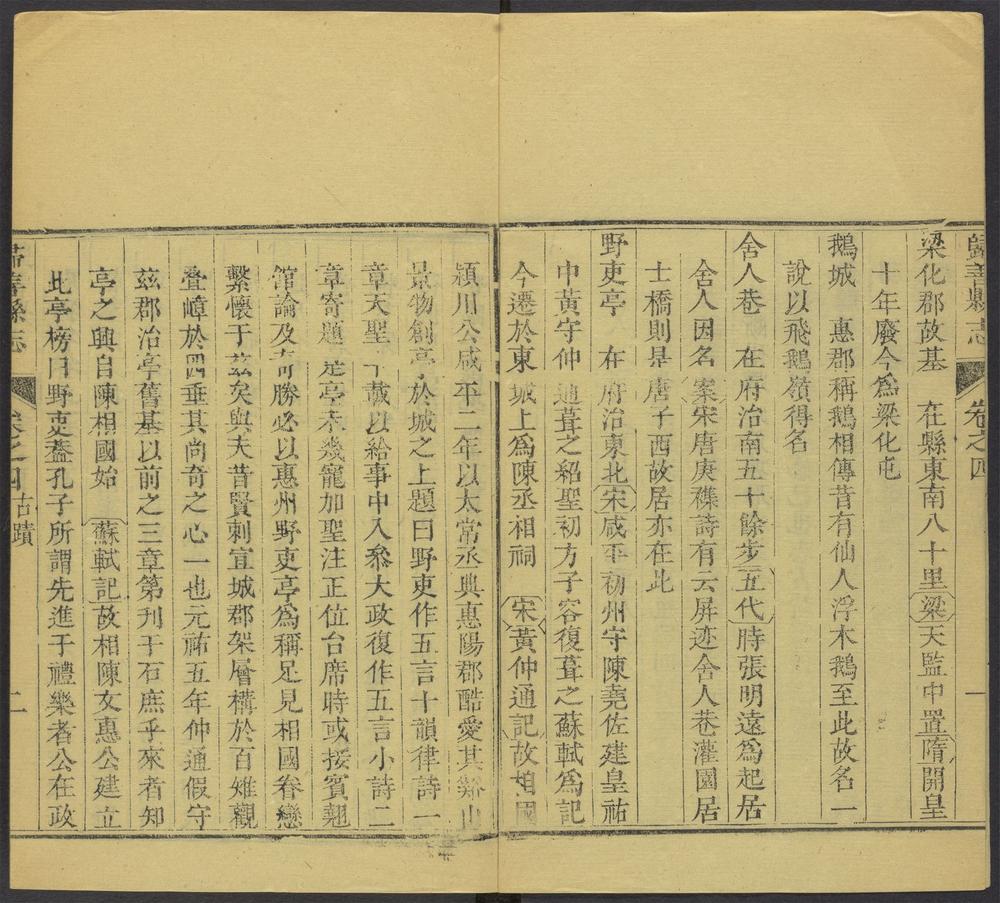 歸善縣志 卷之四 一
梁化郡故基 在縣東南八十里梁天監中置隋開皇
十年廢今為梁化屯
鵝城 惠郡稱鵝相傳昔有仙人浮木鵝至此故名一
說以飛鵝嶺得名
舍人巷 在府治南五十餘步五代時張明遠為起居
舍人因名案宋唐庚襍詩有云屏迹舍人巷灌園居
士橋則是唐子西故居亦在此
野吏亭 在府治東北宋咸平初州守陳堯佐建皇祐
中黃守仲通葺之紹聖初方子容復葺之蘇軾為記
今遷於東城上為陳丞相祠 宋黃仲通記故相國
潁川公咸平二年以太常丞典惠陽郡酷愛其谿山
景物創亭於城之上題曰野吏作五言十韻律詩一
章天聖 載以給事中入叅大政復作五言小詩二
章寄題是亭未幾寵加聖注正位台席時或接賓翹
館論及奇勝必以惠州野吏亭為稱足見相國眷戀
繫懷于茲矣與夫昔賢刺宣城郡架層構於百雉觀
疊嶂於四垂其尚奇之心一也元祐五年仲通假守
茲郡治亭舊基以前之三章第刊于石庶乎來者知
亭之興自陳相國始 蘇軾記故相陳文惠公建立
此亭榜曰野吏蓋孔子所謂先進于禮樂者公在政
歸善縣志 卷之四古蹟 二